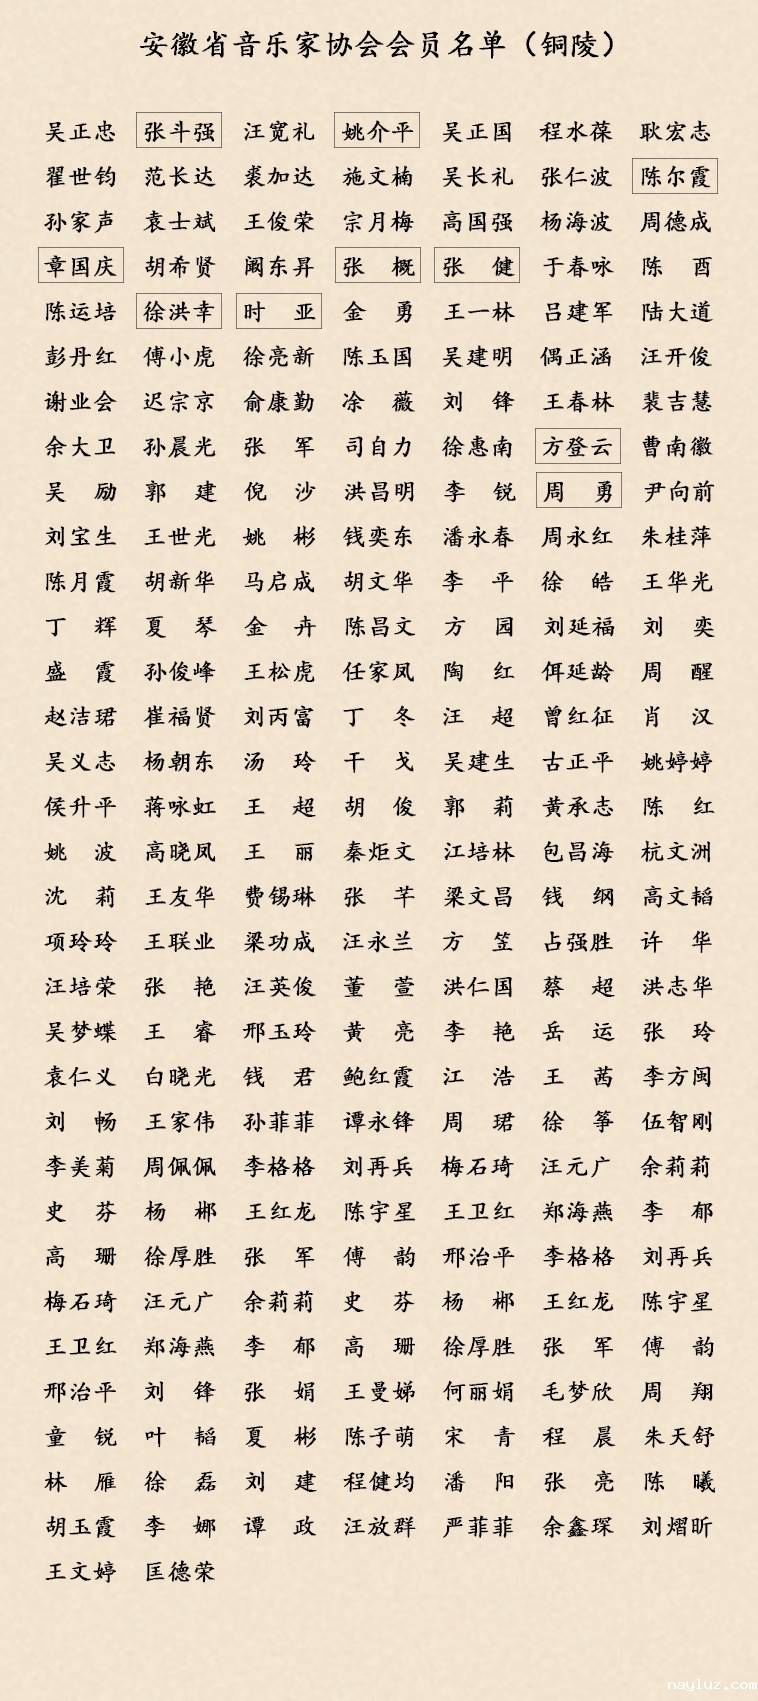 安徽省音乐家协会会员名单（铜陵）
吴正忠 张斗强 汪宽礼 姚介平 吴正国 程水葆 耿宏志
翟世钧 范长达 裘加达 施文楠 吴长礼 张仁波 陈尔霞
孙家声 袁士斌 王俊荣 宗月梅 高国强 杨海波 周德成
章国庆 胡希贤 阚东昇 张概 张健 于春咏 陈酉
陈运培 徐洪幸 时亚 金勇 王一林 吕建军 陆大道
彭丹红 傅小虎 徐亮新 陈玉国 吴建明 偶正涵 汪开俊
谢业会 迟宗京 俞康勤 凃薇 刘锋 王春林 裴吉慧
余大卫 孙晨光 张军 司自力 徐惠南 方登云 曹南徽
吴励 郭建 倪沙 洪昌明 李锐 周勇 尹向前
刘宝生 王世光 姚彬 钱奕东 潘永春 周永红 朱桂萍
陈月霞 胡新华 马启成 胡文华 李平 徐皓 王华光
丁辉 夏琴 金卉 陈昌文 方园 刘延福 刘奕
盛霞 孙俊峰 王松虎 任家凤 陶红 佴延龄 周醒
赵洁珺 崔福贤 刘丙富 丁冬 汪超 曾红征 肖汉
吴义志 杨朝东 汤玲 干戈 吴建生 古正平 姚婷婷
侯升平 蒋咏虹 王超 胡俊 郭莉 黄承志 陈红
姚波 高晓凤 王丽 秦炬文 江培林 包昌海 杭文洲
沈莉 王友华 费锡琳 张芊 梁文昌 钱纲 高文韬
项玲玲 王联业 梁功成 汪永兰 方笠 占强胜 许华
汪培荣 张艳 汪英俊 董萱 洪仁国 蔡超 洪志华
吴梦蝶 王睿 邢玉玲 黄亮 李艳 岳运 张玲
袁仁义 白晓光 钱君 鲍红霞 江浩 王茜 李方闽
刘畅 王家伟 孙菲菲 谭永锋 周珺 徐筝 伍智刚
李美菊 周佩佩 李格格 刘再兵 梅石琦 汪元广 余莉莉
史芬 杨郴 王红龙 陈宇星 王卫红 郑海燕 李郁
高珊 徐厚胜 张军 傅韵 邢治平 李格格 刘再兵
梅石琦 汪元广 余莉莉 史芬 杨郴 王红龙 陈宇星
王卫红 郑海燕 李郁 高珊 徐厚胜 张军 傅韵
邢治平 刘锋 张娟 王曼娣 何丽娟 毛梦欣 周翔
童锐 叶韬 夏彬 陈子萌 宋青 程晨 朱天舒
林雁 徐磊 刘建 程健均 潘阳 张亮 陈曦
胡玉霞 李娜 谭政 汪放群 严菲菲 余鑫琛 刘熠昕
王文婷 匡德荣
nayluz.com